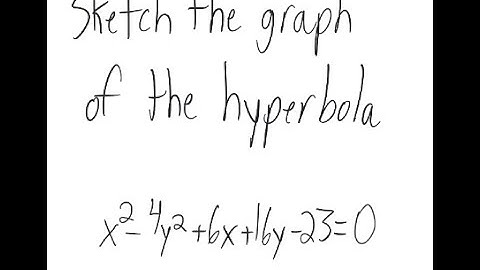 Sketch the graph
of the hyperbola
x²-4y²+6x+16y-23=0